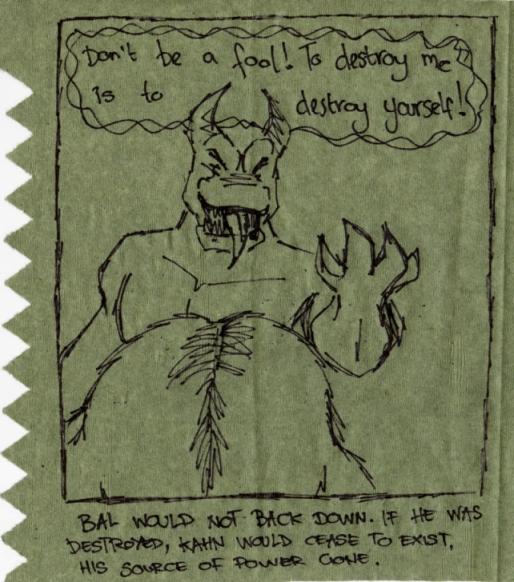 Don't be a fool! To destroy me
is to destroy yourself!
BAL WOULD NOT BACK DOWN. IF HE WAS
DESTROYED, KAHN WOULD CEASE TO EXIST,
HIS SOURCE OF POWER GONE.